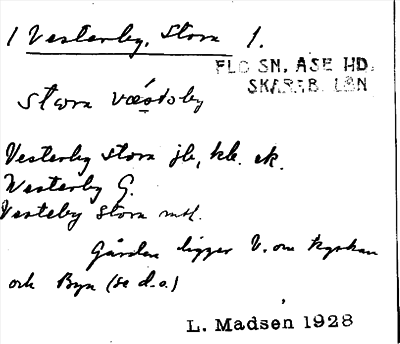 1 Vesterby, Stora 1.
FLO SN. ÅSE HD.
SKARAB. LÄN
stωra væstsby
Vesterby Stora jb, kb. ek.
Westerby G.
Vesteby Stora mtl.
Gården ligger V. om kyrkan
och Byn (se d.o.)
L. Madsen 1928